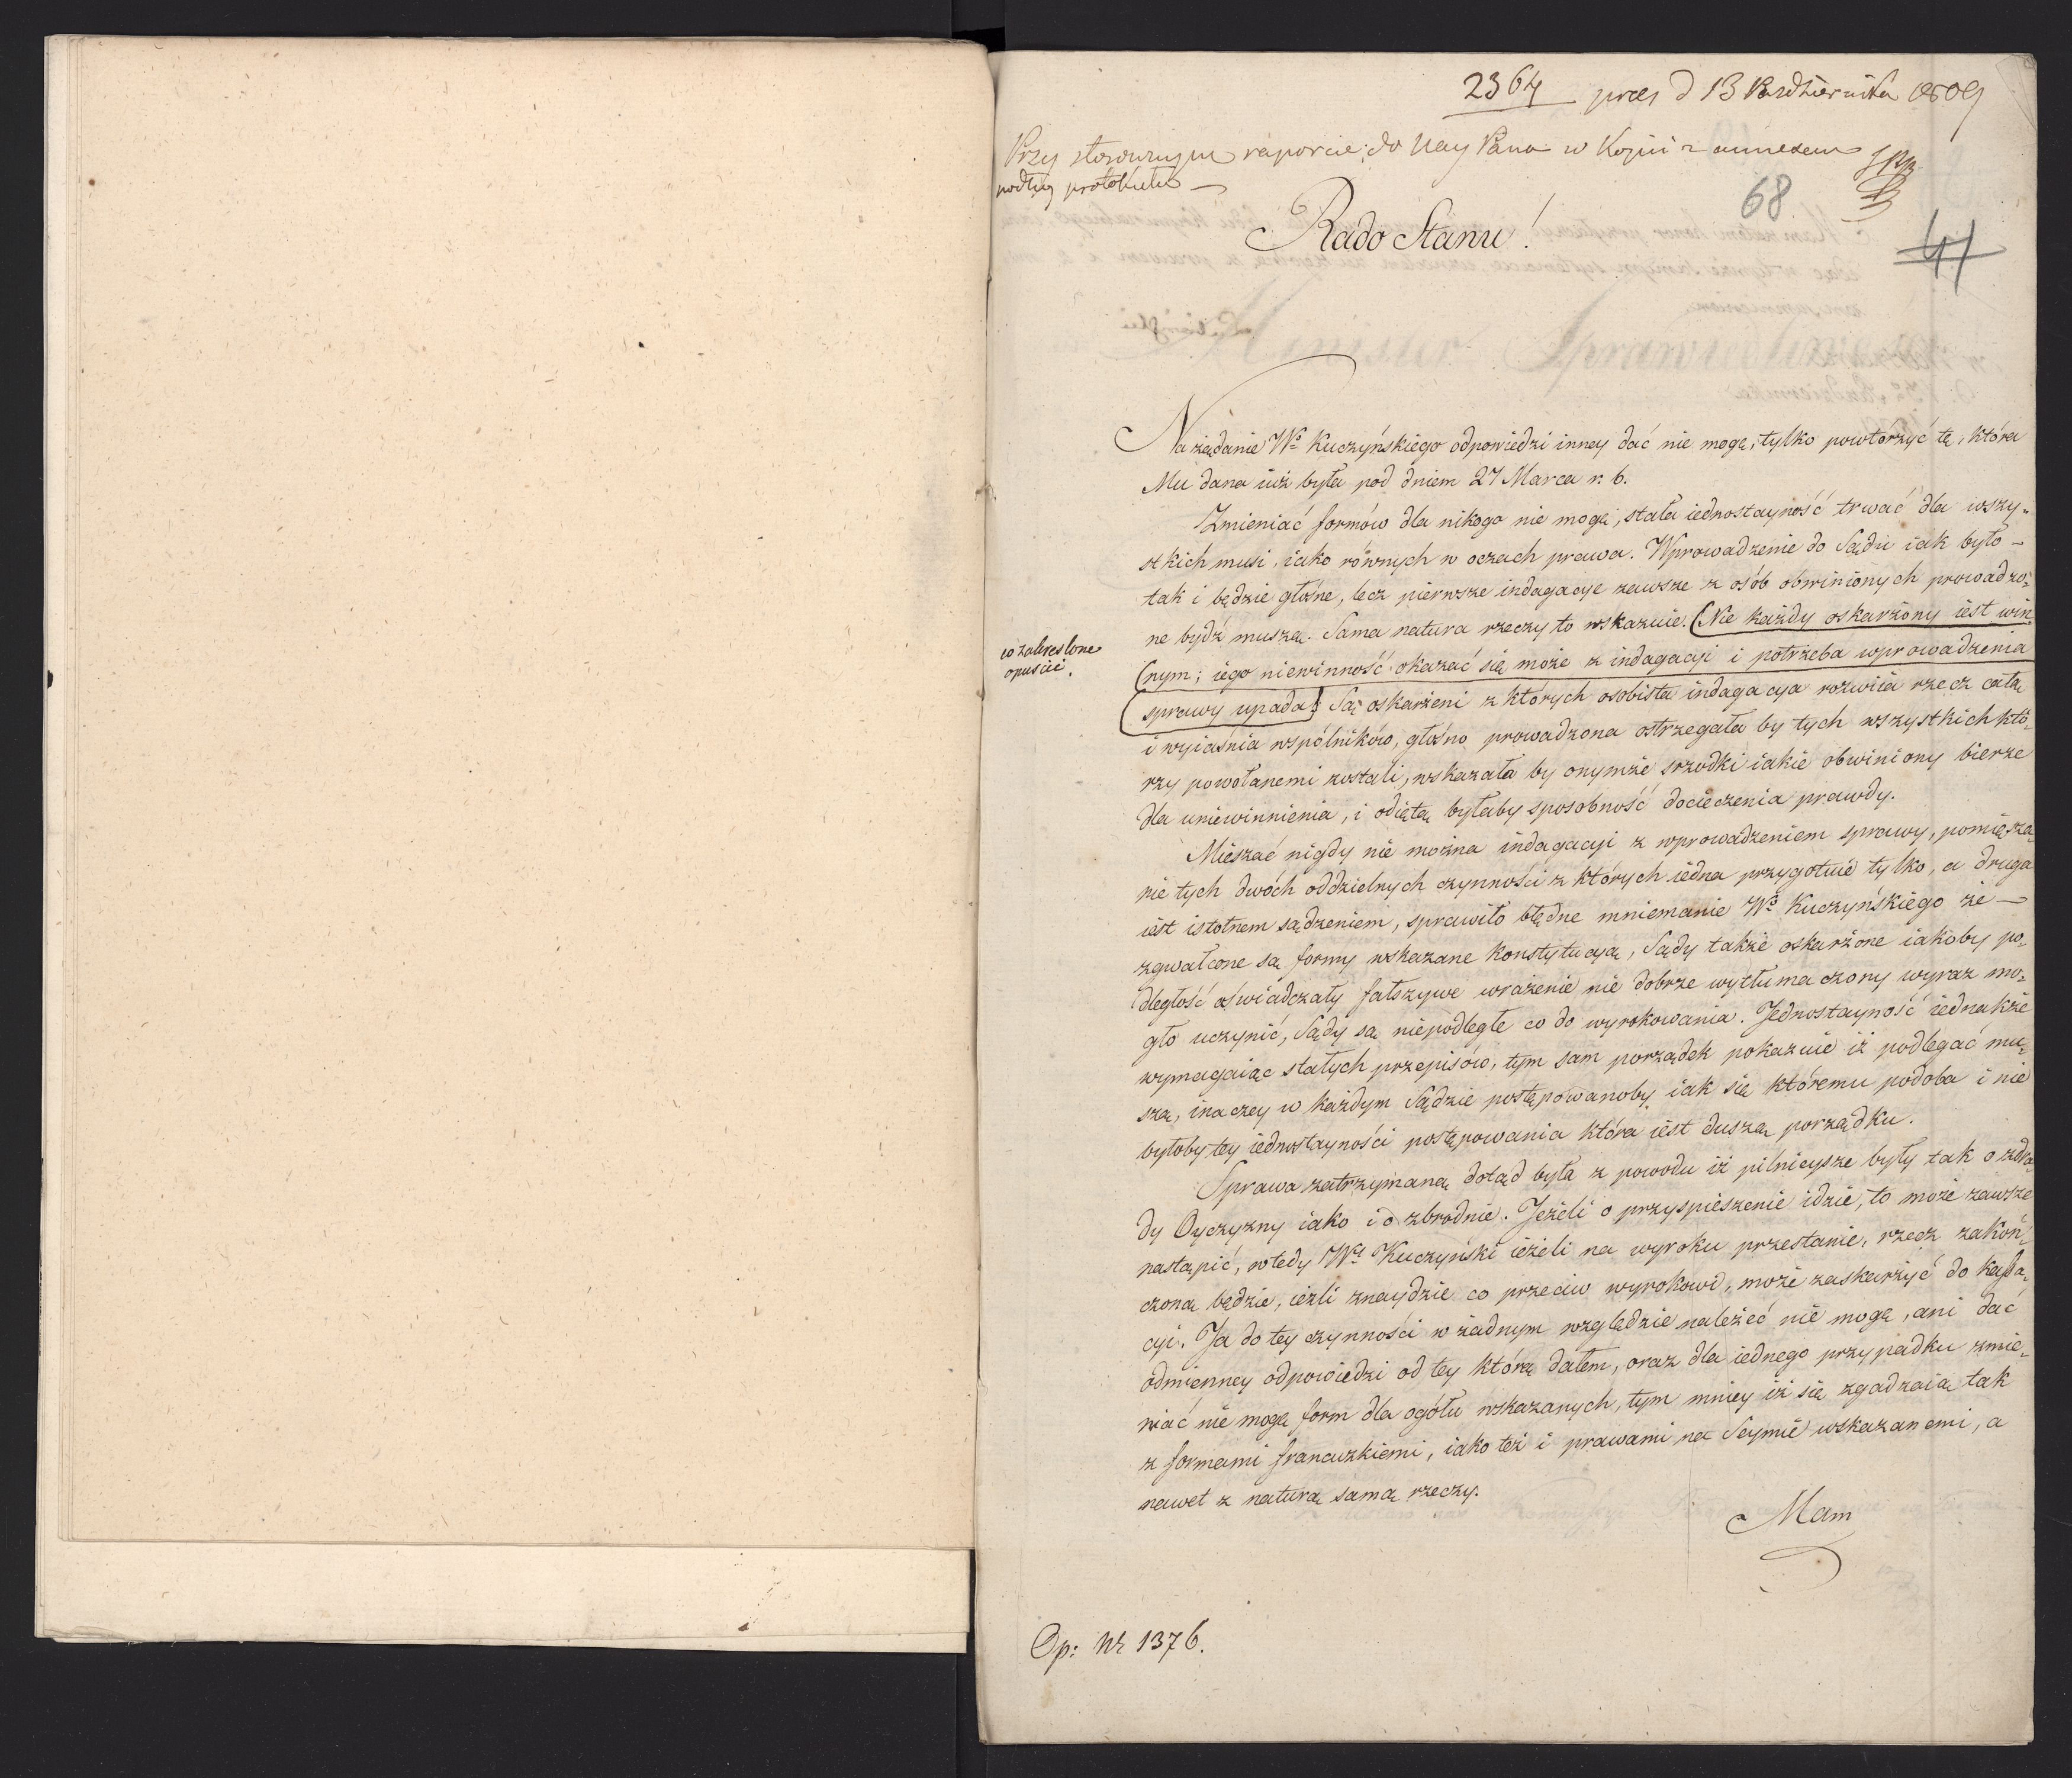 2364 præs d 13 Października 1809
Przy stosownym raporcie do Nay Pana w Kopii z annexem
podług protokułu —
68
41
Rado Stanu!
Na żądanie Wo Kuczyńskiego odpowiedzi inney dać nie mogę, tylko powtorzyć tę, która
Mu dana iuż była pod dniem 27 Marca r. b.
Zmieniać formów dla nikogo nie mogę, stała iednostayność trwać dla wszy-
stkich musi, iako równych w oczach prawa. Wprowadzenie do Sądu iak było –
tak i będzie głośne, lecz pierwsze indagacye zawsze z osób obwinionych prowadzo-
ne bydź muszą. Sama natura rzeczy to wskazuie. (Nie każdy oskarżony iest win-
co zakreślone
opuścić.
(nym; iego niewinność okazać się może z indagacyi i potrzeba wprowadzenia
(sprawy upada.) Są oskarżeni z których osobista indagacya rozwiia rzecz całą
i wyiaśnia wspólników, głośno prowadzona ostrzegała by tych wszystkich któ-
rzy powołanemi zostali, wskazała by onymże srzodki iakie obwiniony bierze
dla uniewinnienia, i odiętą byłaby sposobność docieczenia prawdy.
Mieszać nigdy nie można indagacyi z wprowadzeniem sprawy, pomięsza-
nie tych dwóch oddzielnych czynności z których iedna przygotuie tylko, a druga
iest istotnem sądzeniem, sprawiło błędne mniemanie Wo Kuczyńskiego że —
zgwałcone są formy wskazane konstytucyą, Sądy także oskarżone iakoby po-
dległość oświadczały fałszywe wrażenie nie dobrze wytłumaczony wyraz mo-
gło uczynić, Sądy są niepodległe co do wyrokowania. Jednostayność iednakże
wymagaiąc stałych przepisów, tym sam porządek pokazuie iż podlegać mu-
szą, inaczey w każdym Sądzie postępowanoby iak się któremu podoba i nie
byłoby tey iednostayności postępowania która iest duszą porządku.
Sprawa zatrzymaną dotąd była z powodu iż pilnieysze były tak o zdra-
dy Oyczyzny iako i o zbrodnie. Jeżeli o przyspieszenie idzie, to może zawsze
nastąpić, wtedy Wy Kuczyński ieżeli na wyroku przestanie, rzecz zakoń-
czoną będzie, ieżli znaydzie co przeciw wyrokowi, może zaskarżyć do kassa-
cyi. Ja do tey czynności w żadnym względzie należeć nie mogę, ani dać
odmienney odpowiedzi od tey którą dałem, oraz dla iednego przypadku zmie-
niać nie mogę form dla ogółu wskazanych, tym mniey iż się zgadzaią tak
z formami francuzkiemi, iako też i prawami na Seymie wskazanemi, a
nawet z naturą samą rzeczy.
Mam
Op: Nr 1376.